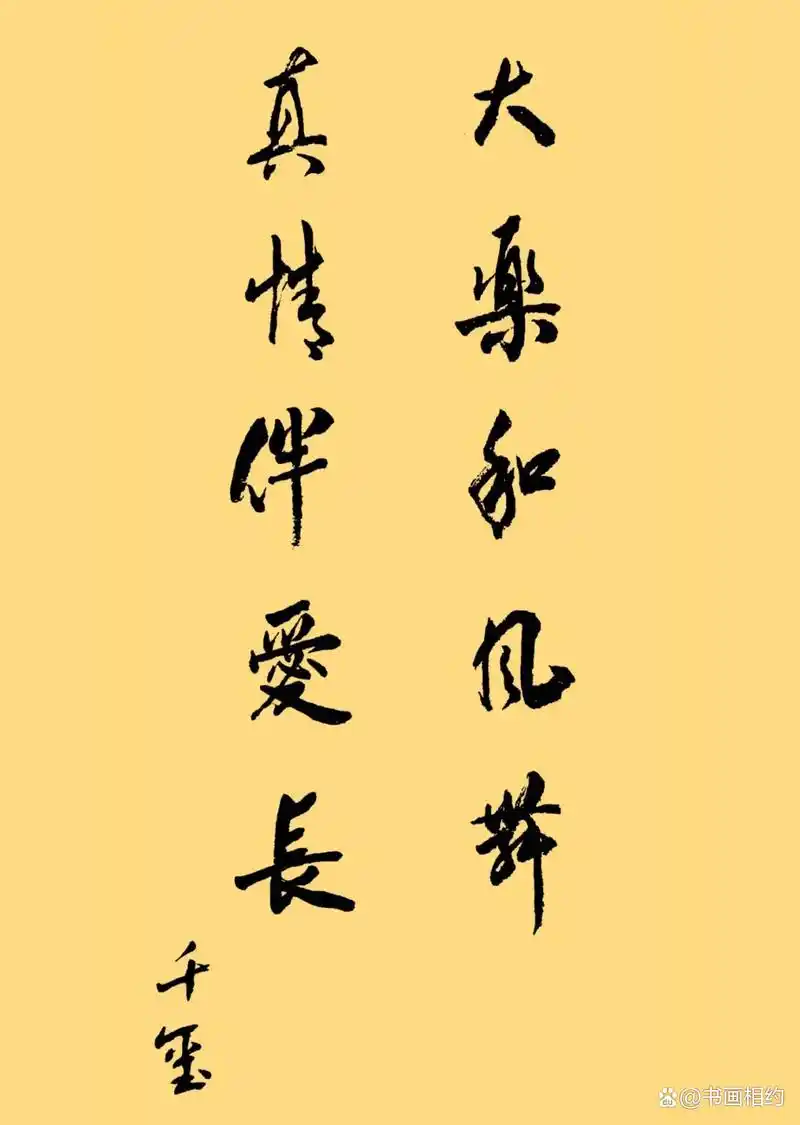 大樂和风舞
真情伴愛長
千玺
@书画相约